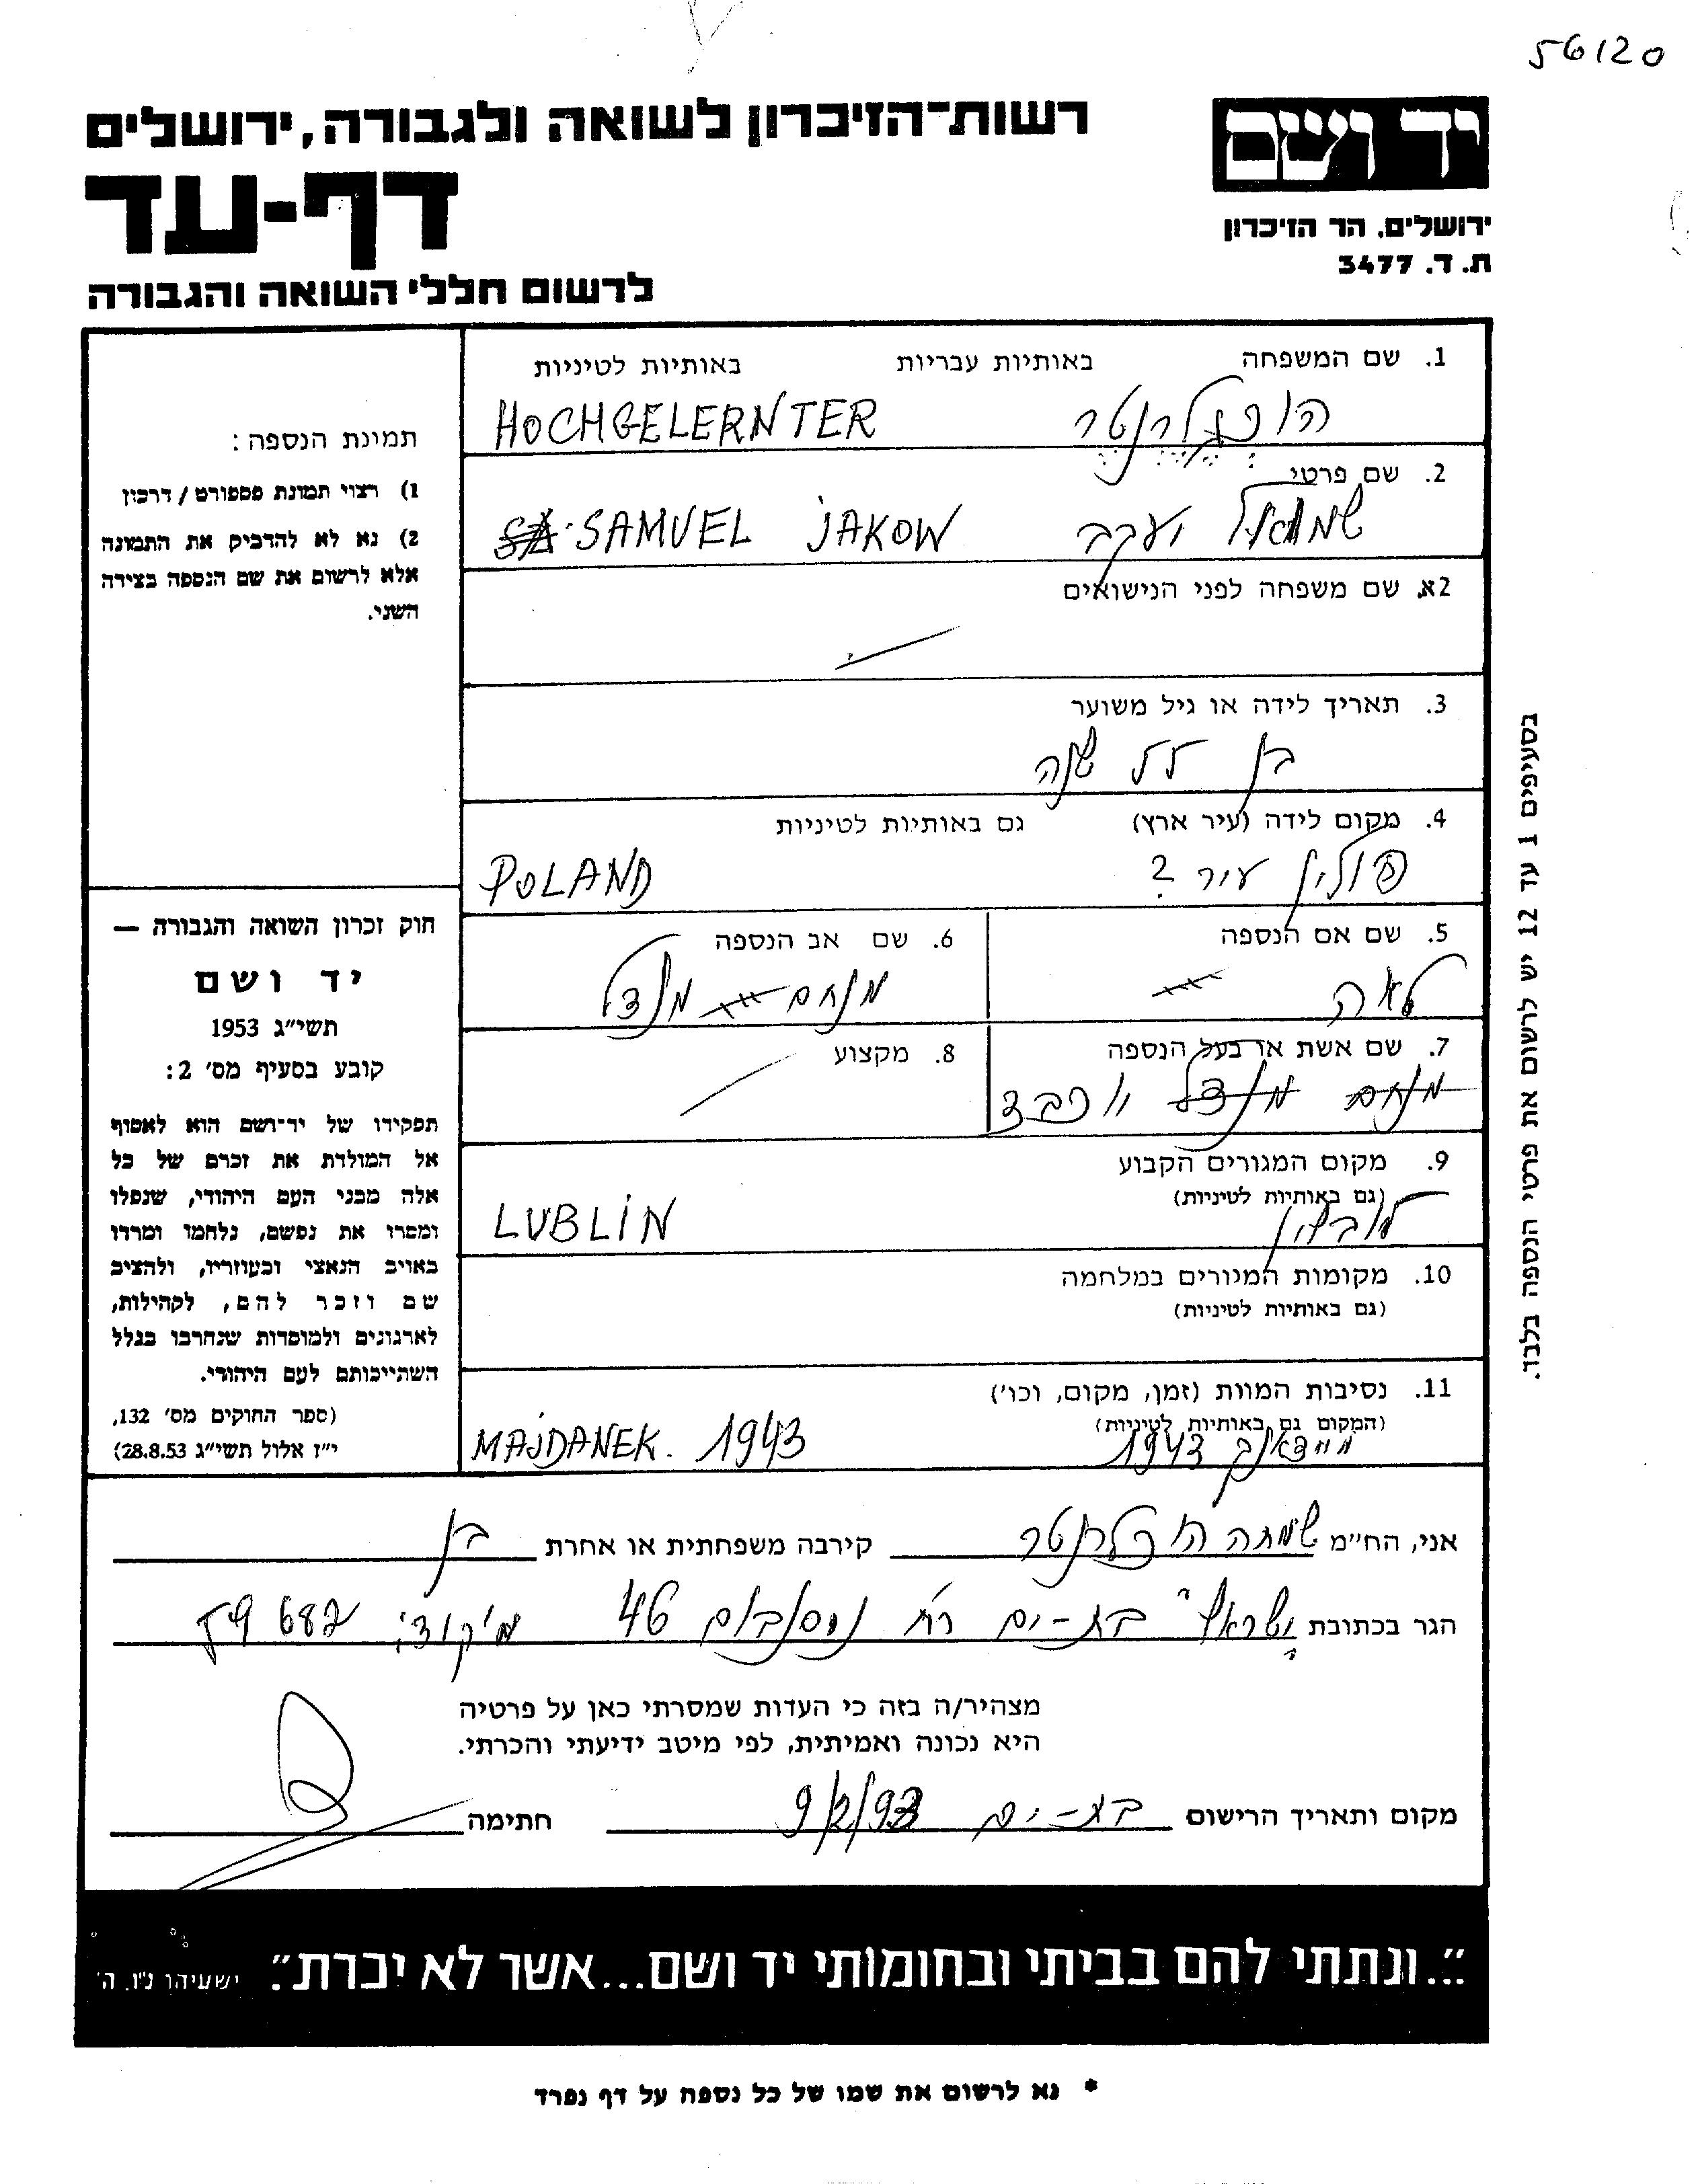 56120
יד ושם
ירושלים. הר הזיכרון
ת. ד. 3477
רשות־הזיכרון לשואה ולגבורה, ירושלים
דף-עד
לרשום חללי השואה והגבורה
1. שם המשפחה באותיות עבריות באותיות לטיניות
הוכגלרנטר HOCHGELERNTER
2. שם פרטי
שמואל יעקב SAMUEL JAKOW
2א. שם משפחה לפני הנישואים
3. תאריך לידה או גיל משוער
בן שנה
4. מקום לידה (עיר ארץ) גם באותיות לטיניות
פולין עיר ? POLAND
5. שם אם הנספה
לאה
6. שם אב הנספה
מנחם מנדל
7. שם אשת או בעל הנספה
מנחם מנדל יוכבד
8. מקצוע
9. מקום המגורים הקבוע
(גם באותיות לטיניות)
לובלין LUBLIN
10. מקומות המגורים במלחמה
(גם באותיות לטיניות)
11. נסיבות המוות (זמן, מקום, וכו')
(המקום גם באותיות לטיניות)
מיידאנק 1943 MAJDANEK. 1943
תמונת הנספה :
1) רצוי תמונת פספורט / דרכון
2) נא לא להדביק את התמונה
אלא לרשום את שם הנספה בצידה
השני.
חוק זכרון השואה והגבורה —
יד ושם
תשי״ג 1953
קובע בסעיף מס׳ 2:
תפקידו של יד־ושם הוא לאסוף
אל המולדת את זכרם של כל
אלה מבני העם היהודי, שנפלו
ומסרו את נפשם, נלחמו ומרדו
באויב הנאצי ובעוזריו, ולהציב
שם וזכר להם, לקהילות,
לארגונים ולמוסדות שנחרבו בגלל
השתייכותם לעם היהודי.
(ספר החוקים מס׳ 132,
י״ז אלול תשי״ג 28.8.53)
בסעיפים 1 עד 12 יש לרשום את פרטי הנספה בלבד.
אני, הח״מ שמחה הוכגלרנטר קירבה משפחתית או אחרת בן
הגר בכתובת ישראל בת-ים רח׳ ניסנבוים 46 מיקוד: 59682
מצהיר/ה בזה כי העדות שמסרתי כאן על פרטיה
היא נכונה ואמיתית, לפי מיטב ידיעתי והכרתי.
מקום ותאריך הרישום בת-ים 9/2/93 חתימה
״...ונתתי להם בביתי ובחומותי יד ושם...אשר לא יכרת״. ישעיהו נ״ו, ה׳
* נא לרשום את שמו של כל נספה על דף נפרד